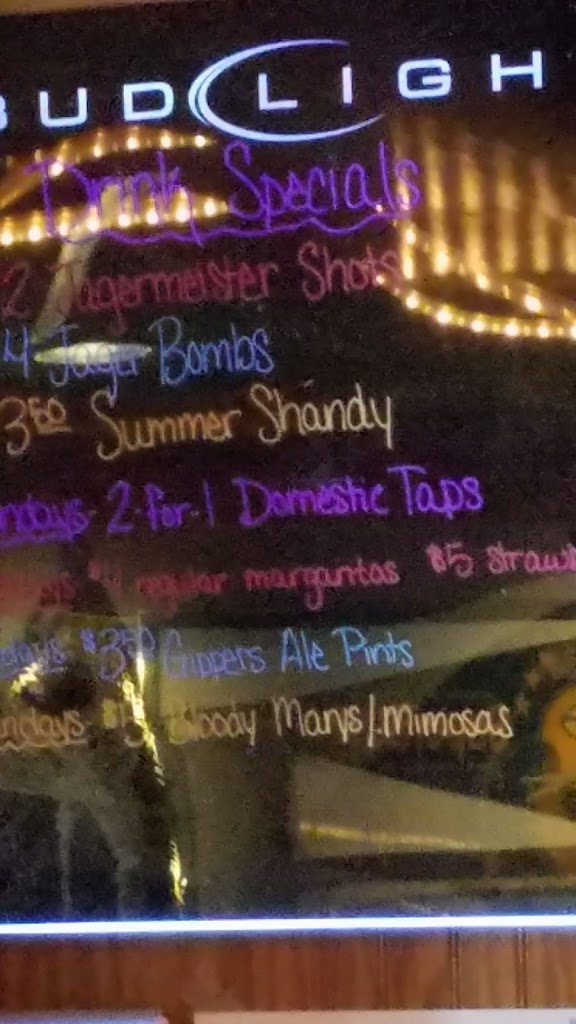 BUD LIGH
Drink Specials
2 Jagermeister Shots
4 Jager Bombs
3⁵⁰ Summer Shandy
ndays-2-for-1 Domestic Taps
days $4 regular margaritas $5 straw
days $3⁵⁰ Gippers Ale Pints
ndays $5 Bloody Marys/Mimosas